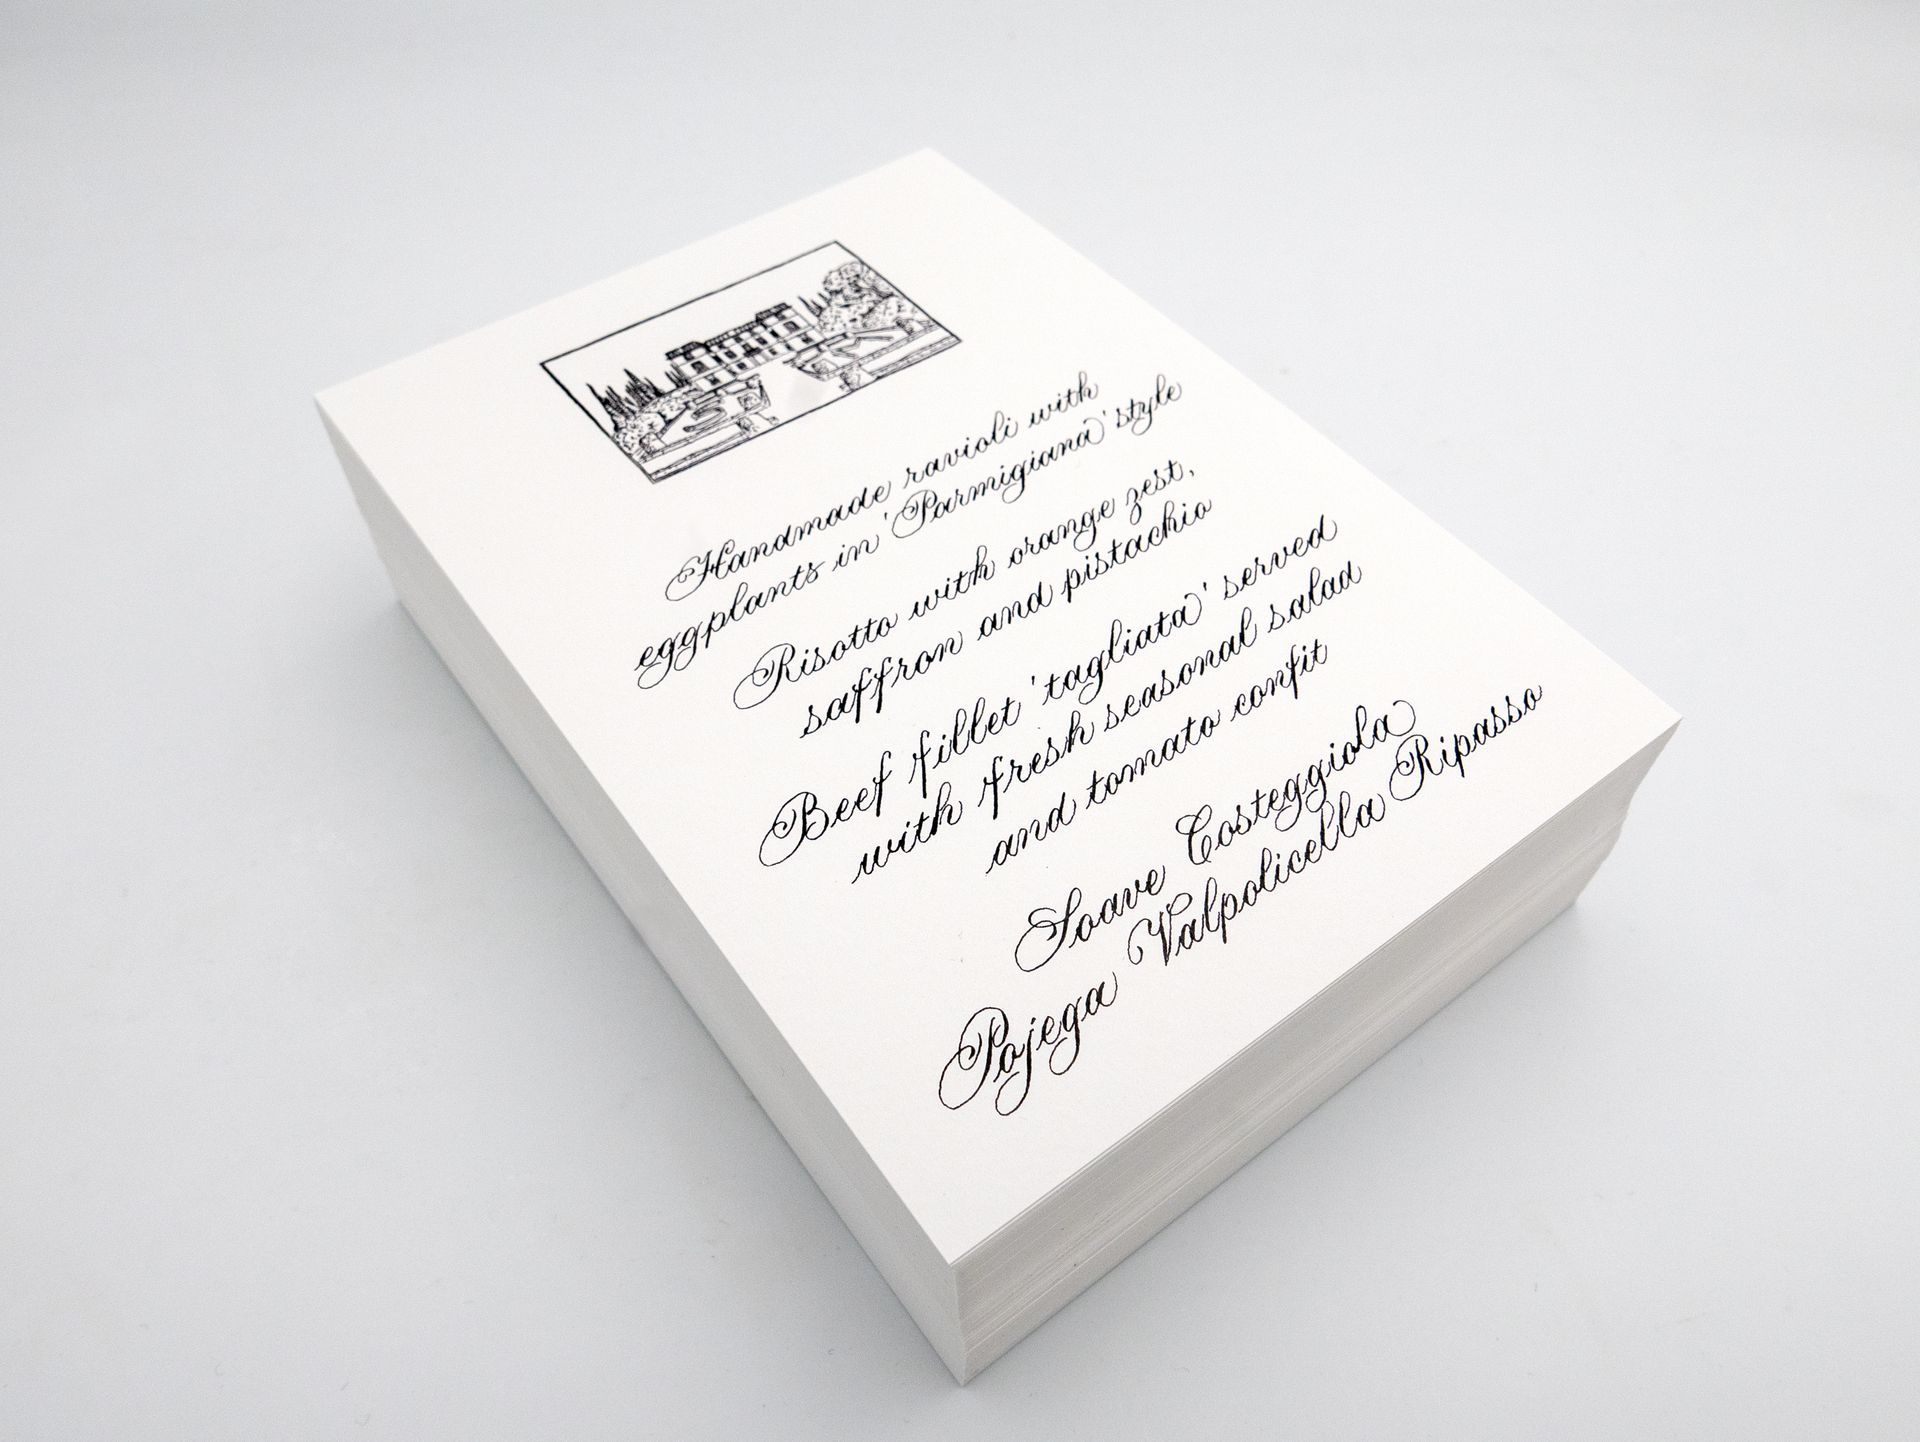 Handmade ravioli with
eggplants in 'Parmigiana' style
Risotto with orange zest,
saffron and pistachio
Beef fillet 'tagliata' served
with fresh seasonal salad
and tomato confit
Soave Costeggiola
Pojega Valpolicella Ripasso